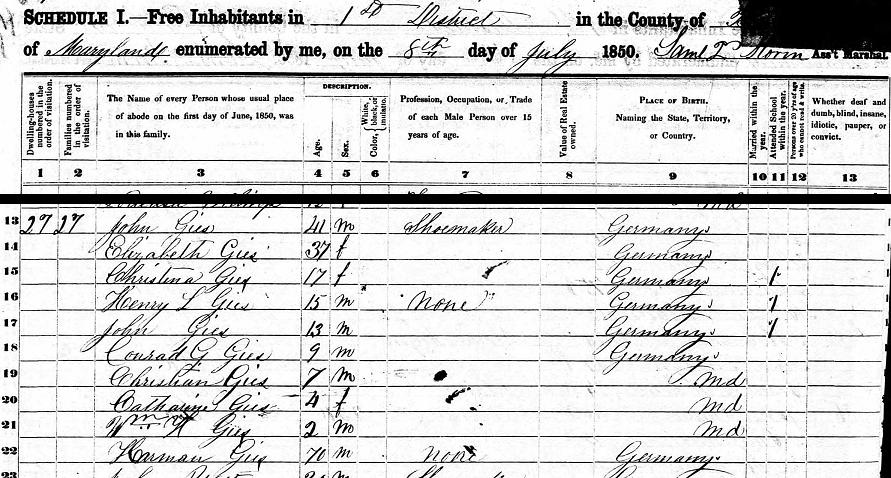 SCHEDULE I.—Free Inhabitants in 1st District in the County of
of Maryland enumerated by me, on the 8th day of July 1850. Saml T. Ass't Marshal.
Dwelling-houses numbered in the order of visitation.
Families numbered in the order of visitation.
The Name of every Person whose usual place of abode on the first day of June, 1850, was in this family.
DESCRIPTION.
Age.
Sex.
Color, White, black, or mulatto.
Profession, Occupation, or Trade of each Male Person over 15 years of age.
Value of Real Estate owned.
PLACE OF BIRTH. Naming the State, Territory, or Country.
Married within the year.
Attended School within the year.
Persons over 20 y'rs of age who cannot read & write.
Whether deaf and dumb, blind, insane, idiotic, pauper, or convict.
1 2 3 4 5 6 7 8 9 10 11 12 13
Md
13 27 27 John Gies 41 m Shoemaker Germany
14 Elizabeth Gies 37 f Germany
15 Christina Gies 17 f Germany 1
16 Henry L Gies 15 m None Germany 1
17 John Gies 13 m Germany 1
18 Conrad G Gies 9 m Germany
19 Christian Gies 7 m Md
20 Catharine Gies 4 f Md
21 Wm H Gies 2 m Md
22 Harman Gies 70 m none Germany
23